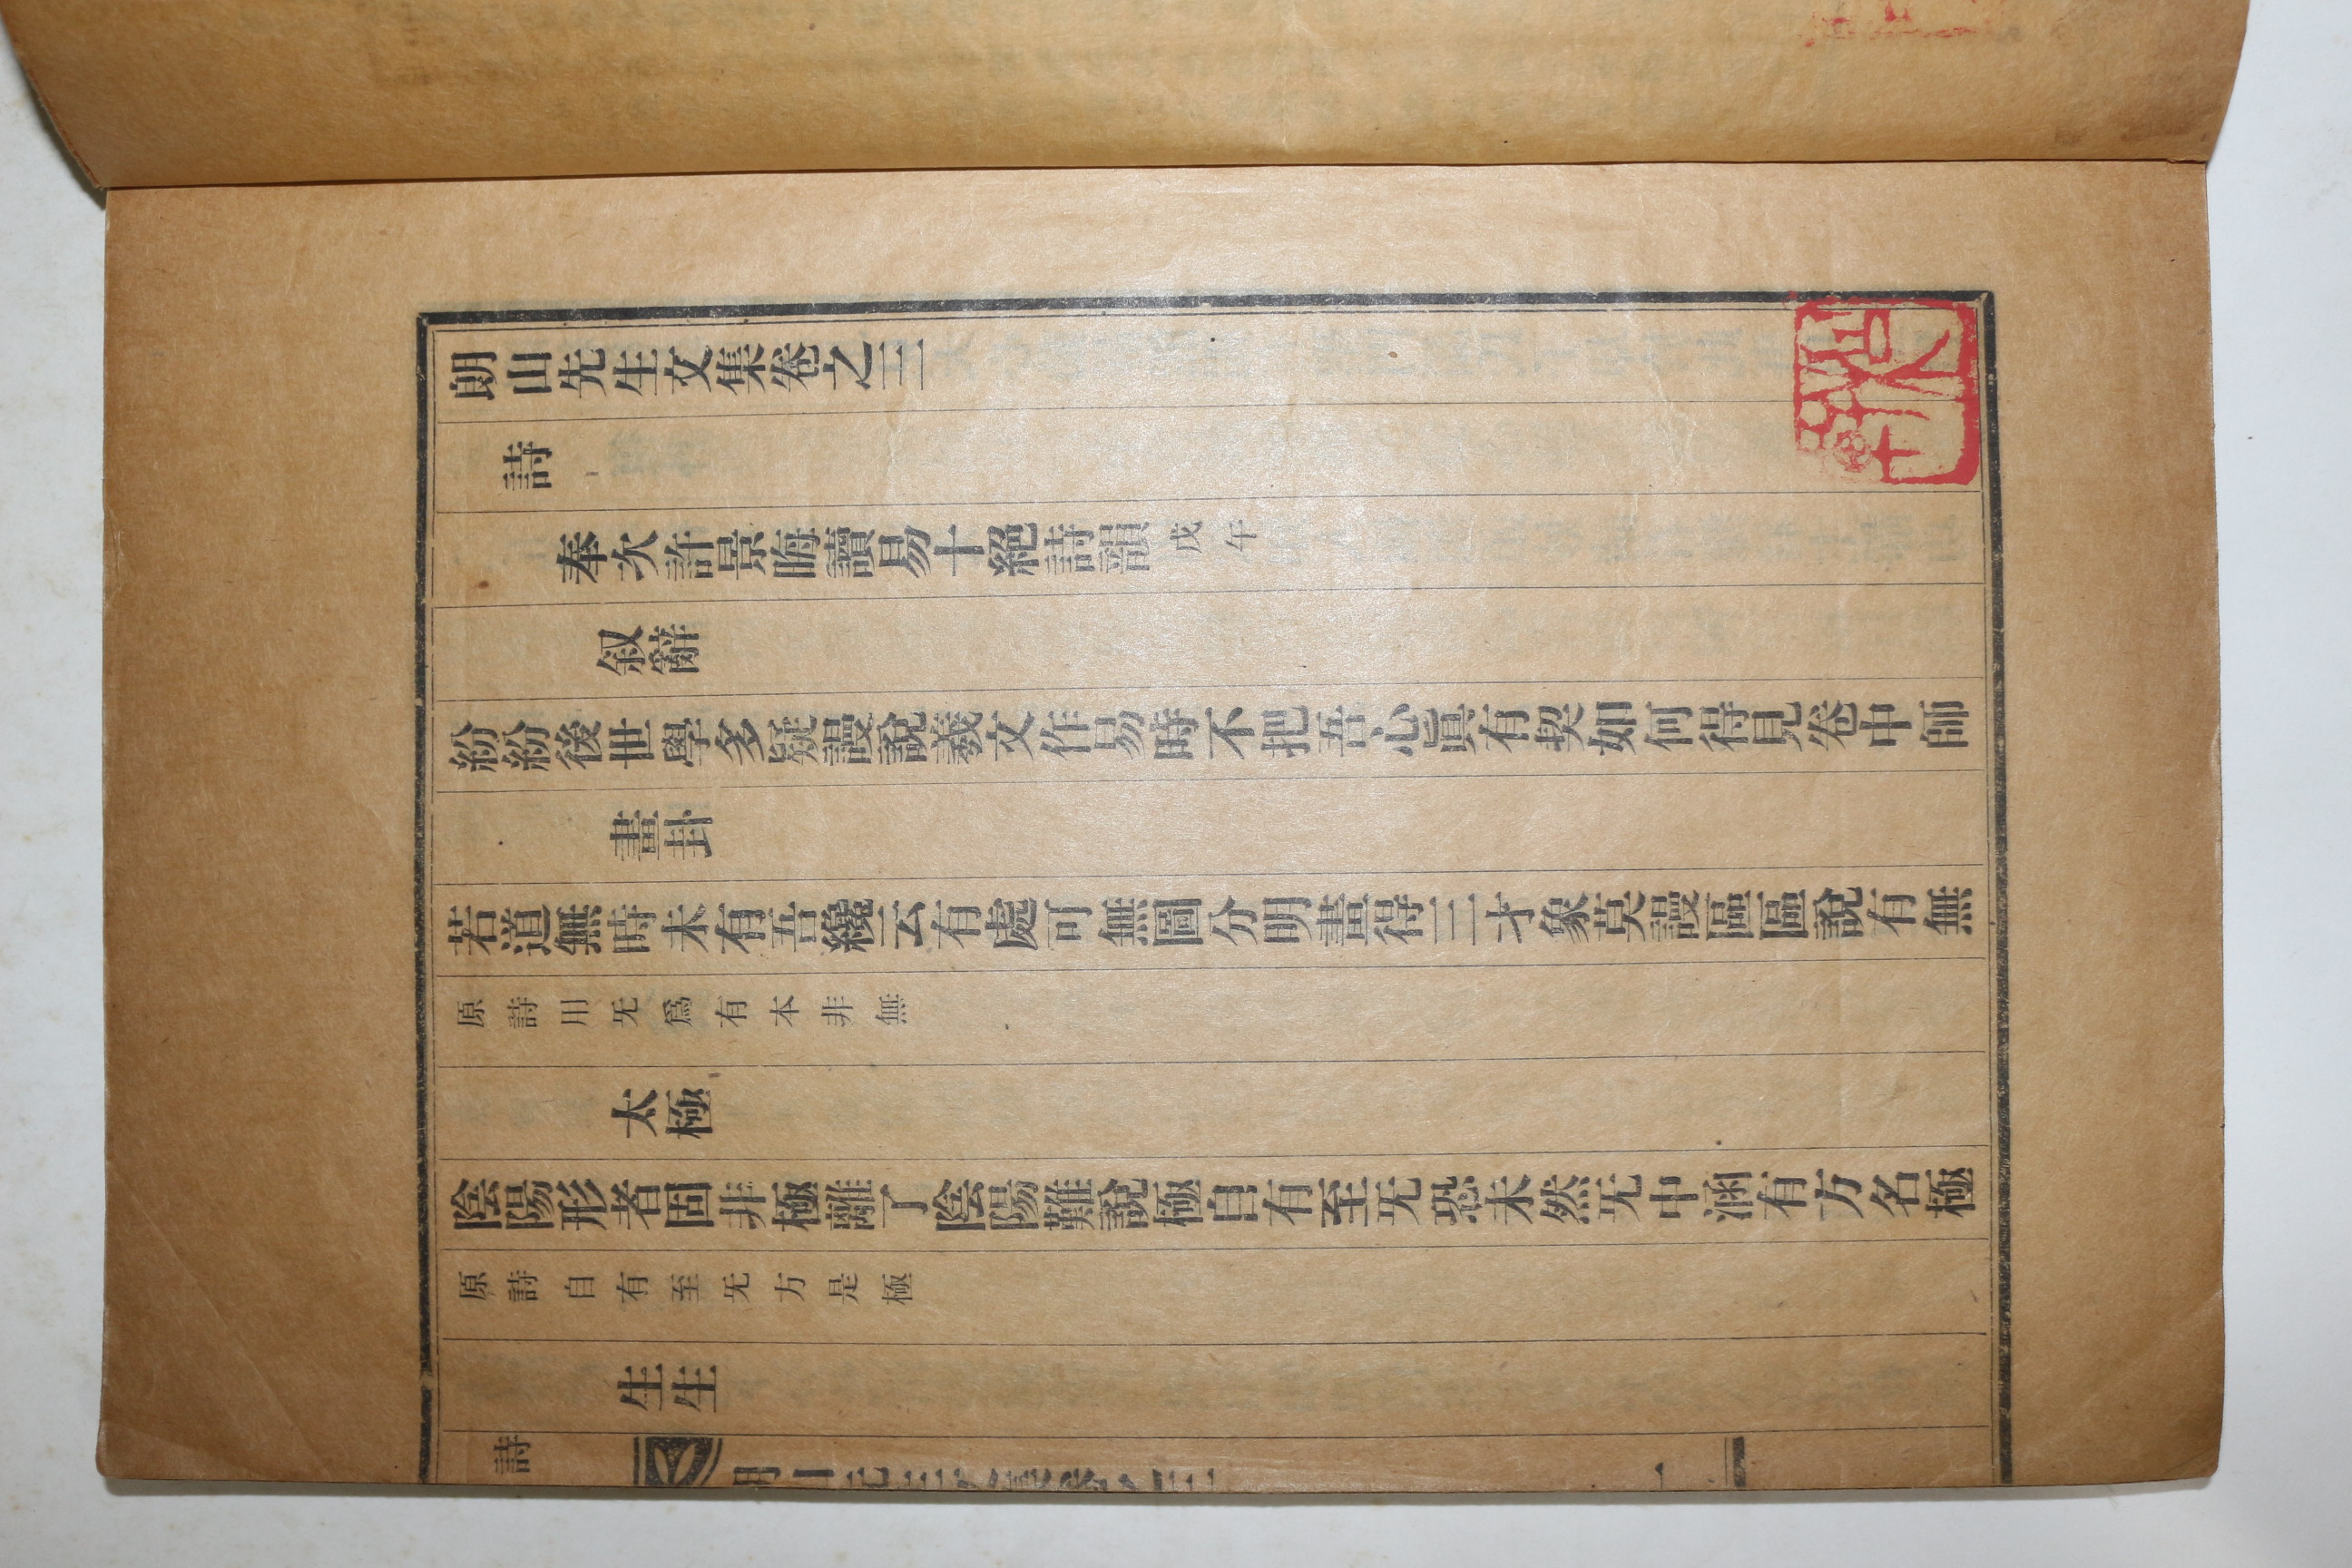 朗山先生文集卷之三
詩
奉次許景晦讀易十絕詩韻戊午
叙辭
紛紛後世學多疑謾說羲文作易時不把吾心眞有契如何得見卷中師
畫卦
若道無時未有吾纔云有處可無圖分明畫得三才象莫謾區區說有無
原詩用旡爲有本非無
太極
陰陽形者固非極離了陰陽難說極自有至旡恐未然旡中涵有方名極
原詩自有至旡方是極
生生
詩
朗山先生文集卷之三
一